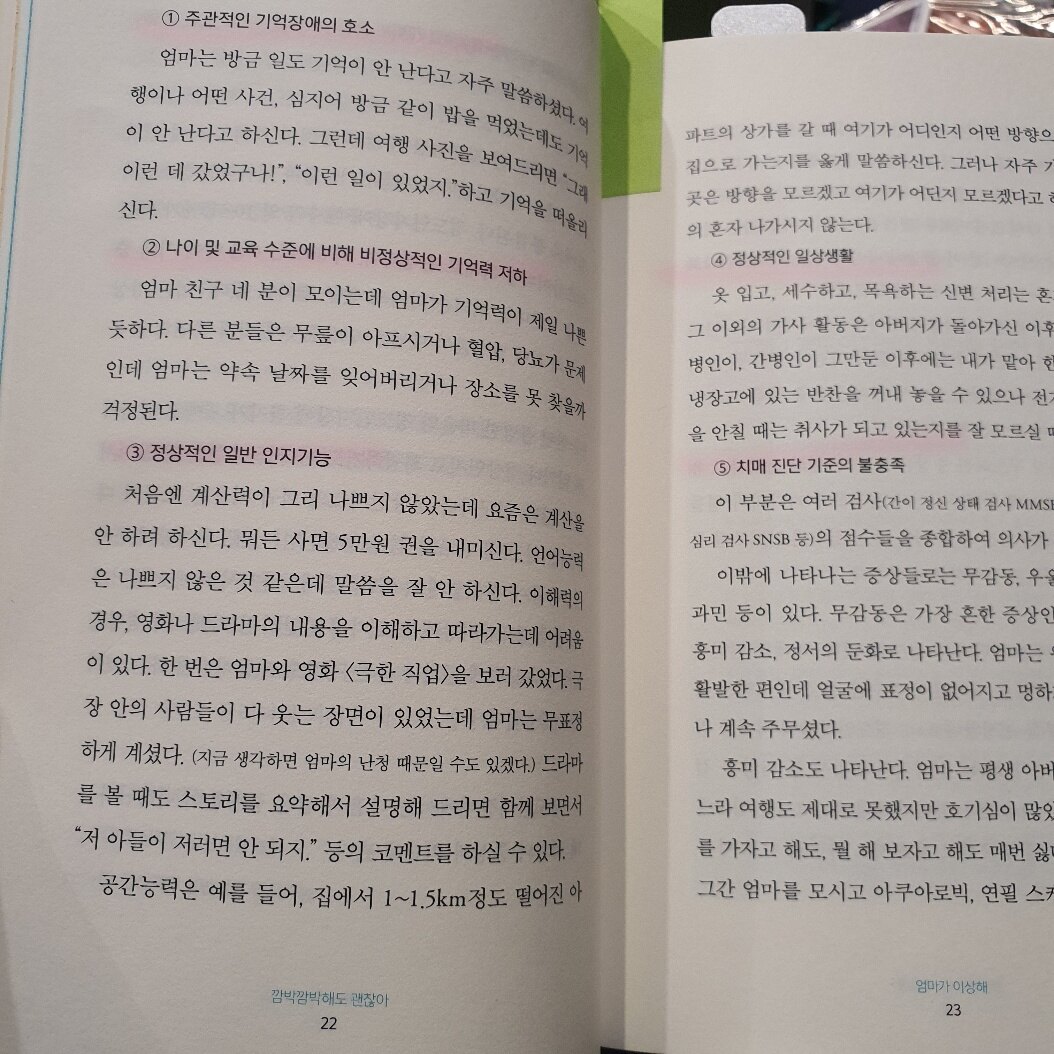 ① 주관적인 기억장애의 호소
엄마는 방금 일도 기억이 안 난다고 자주 말씀하셨다. 여
행이나 어떤 사건, 심지어 방금 같이 밥을 먹었는데도 기억
이 안 난다고 하신다. 그런데 여행 사진을 보여드리면 “그래
이런 데 갔었구나!”, “이런 일이 있었지.”하고 기억을 떠올리
신다.
② 나이 및 교육 수준에 비해 비정상적인 기억력 저하
엄마 친구 네 분이 모이는데 엄마가 기억력이 제일 나쁜
듯하다. 다른 분들은 무릎이 아프시거나 혈압, 당뇨가 문제
인데 엄마는 약속 날짜를 잊어버리거나 장소를 못 찾을까
걱정된다.
③ 정상적인 일반 인지기능
처음엔 계산력이 그리 나쁘지 않았는데 요즘은 계산을
안 하려 하신다. 뭐든 사면 5만원 권을 내미신다. 언어능력
은 나쁘지 않은 것 같은데 말씀을 잘 안 하신다. 이해력의
경우, 영화나 드라마의 내용을 이해하고 따라가는데 어려움
이 있다. 한 번은 엄마와 영화 〈극한 직업〉을 보러 갔었다. 극
장 안의 사람들이 다 웃는 장면이 있었는데 엄마는 무표정
하게 계셨다. (지금 생각하면 엄마의 난청 때문일 수도 있겠다.) 드라마
를 볼 때도 스토리를 요약해서 설명해 드리면 함께 보면서
“저 아들이 저러면 안 되지.” 등의 코멘트를 하실 수 있다.
공간능력은 예를 들어, 집에서 1~1.5km정도 떨어진 아
깜박깜박해도 괜찮아
22
파트의 상가를 갈 때 여기가 어디인지 어떤 방향으
집으로 가는지를 옳게 말씀하신다. 그러나 자주 가
곳은 방향을 모르겠고 여기가 어딘지 모르겠다고 하
의 혼자 나가시지 않는다.
④ 정상적인 일상생활
옷 입고, 세수하고, 목욕하는 신변 처리는 혼
그 이외의 가사 활동은 아버지가 돌아가신 이후
병인이, 간병인이 그만둔 이후에는 내가 맡아 한
냉장고에 있는 반찬을 꺼내 놓을 수 있으나 전
을 안칠 때는 취사가 되고 있는지를 잘 모르실 때
⑤ 치매 진단 기준의 불충족
이 부분은 여러 검사(간이 정신 상태 검사 MMSE
심리 검사 SNSB 등)의 점수들을 종합하여 의사가
이밖에 나타나는 증상들로는 무감동, 우울
과민 등이 있다. 무감동은 가장 흔한 증상인
흥미 감소, 정서의 둔화로 나타난다. 엄마는
활발한 편인데 얼굴에 표정이 없어지고 멍하
나 계속 주무셨다.
흥미 감소도 나타난다. 엄마는 평생 아버
느라 여행도 제대로 못했지만 호기심이 많았
를 가자고 해도, 뭘 해 보자고 해도 매번 싫
그간 엄마를 모시고 아쿠아로빅, 연필 스케
엄마가 이상해
23